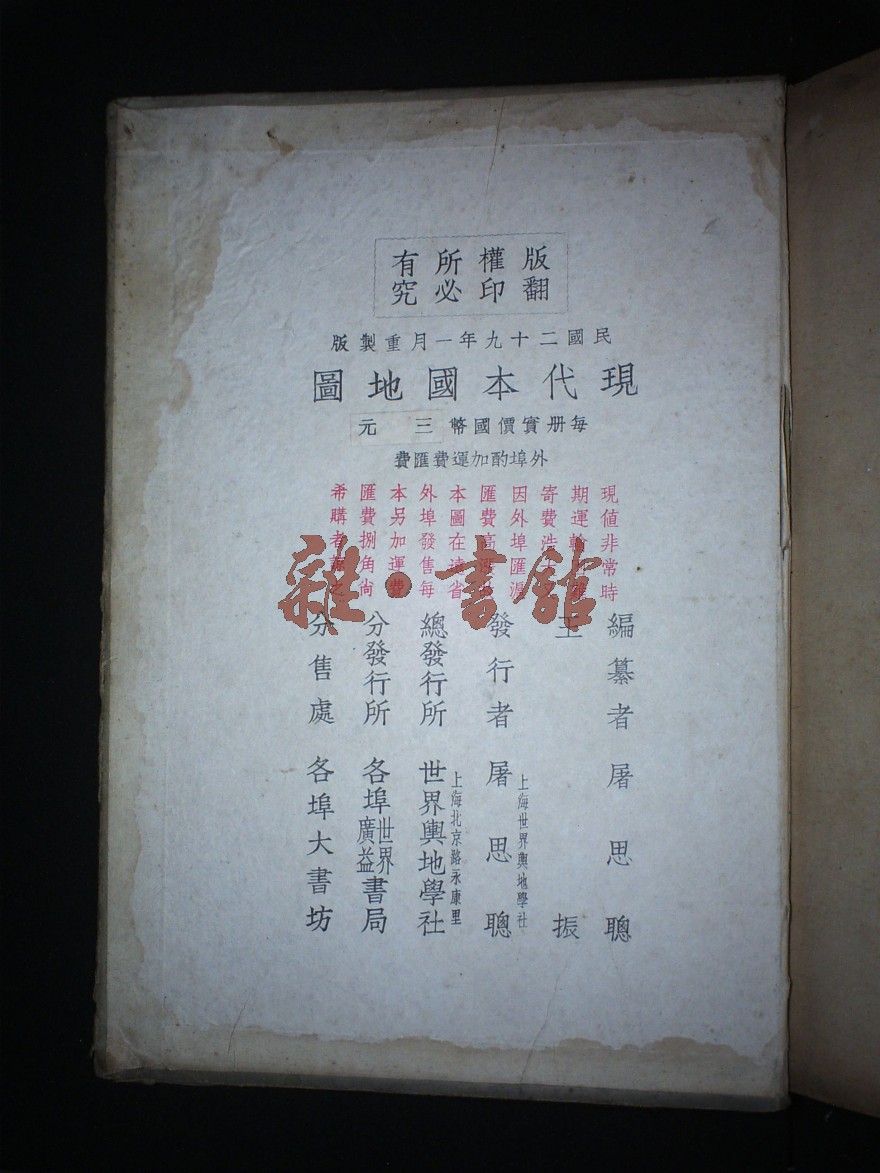 版權所有
翻印必究
民國二十九年一月重製版
現代本國地圖
每册實價國幣三元
外埠酌加運費匯費
現值非常時
期運輸
寄費浩
因外埠匯
匯費高漲
本圖在遠省
外埠發售每
本另加運費
匯費捌角尙
希購者諒之
編纂者 屠思聰
王 振
發行者 上海世界輿地學社 屠思聰
總發行所 上海北京路永康里 世界輿地學社
分發行所 各埠世界廣益書局
分售處 各埠大書坊
雜·書館